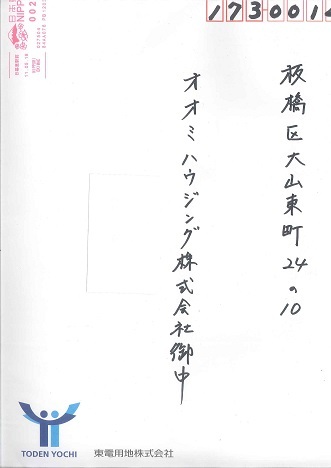 1730014
板橋区大山東町24の10
オオミハウジング株式会社御中
日本郵
NIPPO
002
TODEN YOCHI
東電用地株式会社